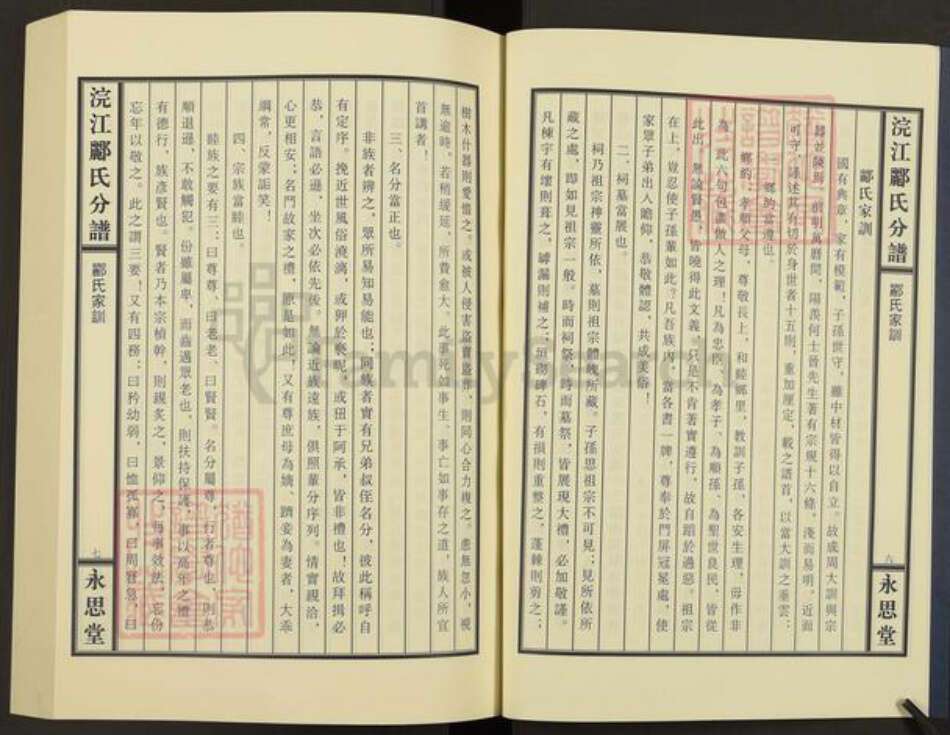 浣江酈氏分譜
酈氏家訓
六
永思堂
酈氏家訓
國有典章，家有模範，子孫世守，雖中材皆得以自立。故成周大訓與宗
器並陳焉。前明萬曆間，陽羨何士晉先生著有宗規十六條，淺而易明，近而
可守，謹述其有切於身世者十五則，重加厘定，載之譜首，以當大訓之垂雲：
鄉約當遵也。
鄉約：孝順父母，尊敬長上，和睦鄉里，教訓子孫，各安生理，毋作非
為。此六句包盡做人之理！凡為忠臣、為孝子、為順孫、為聖世良民，皆從
此出，無論賢愚，皆曉得此文義。只是不肯著實遵行，故自蹈於過惡。祖宗
在上，豈忍使子孫輩如此？凡吾族內，當各書一牌，尊奉於門屏冠冕處，使
家眾子弟出入瞻仰，恭敬體認，共成美俗！
二、祠墓當展也。
祠乃祖宗神靈所依，墓則祖宗體魄所藏。子孫思祖宗不可見；見所依所
藏之處，即如見祖宗一般。時而祠祭，時而墓祭，皆展現大禮，必加敬謹。
凡棟宇有壞則葺之，罅漏則補之；垣砌碑石，有損則重整之，蓬棘則剪之；
樹木什器則愛惜之。或被人侵害盜賣盜葬，則同心合力複之。患無忽小，視
無逾時，若稍緩延，所費愈大。此事死如事生、事亡如事存之道，族人所宜
首講者！
三、名分當正也。
非族者辨之，眾所易知易能也；同族者實有兄弟叔侄名分，彼此稱呼自
有定序。挽近世風俗澆漓，或狎於褻昵，或狃于阿承，皆非禮也！故拜揖必
恭，言語必遜，坐次必依先後。無論近族遠族，俱照輩分序列。情實親洽，
心更相安；名門故家之禮，原是如此，又有尊庶母為嫡、躋妾為妻者，大乖
綱常，反蒙詬笑！
四、宗族當睦也。
睦族之要有三：曰尊尊、曰老老、曰賢賢。名分屬尊，行者尊也，則恭
順退遜，不敢觸犯。份雖屬卑，而齒邁眾老也，則扶持保護，事以高年之禮
有德行，族彥賢也。賢者乃本宗楨幹，則親炙之，景仰之，每事效法，忘份
忘年以敬之。此之謂三要！又有四務；曰矜幼弱，曰恤孤寡，曰周窘急，曰
浣江酈氏分譜
酈氏家訓
七
永思堂